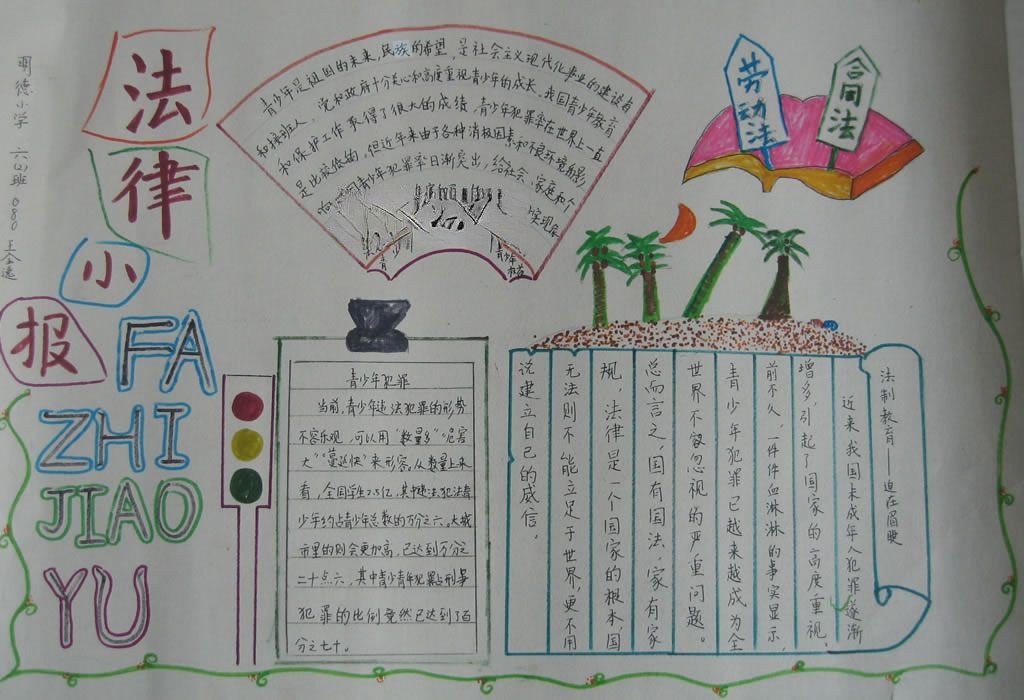 明德小学 六(2)班 080 王金逸
法
律
小
报
FA
ZHI
JIAO
YU
青少年是祖国的未来,民族的希望,是社会主义现代化事业的建设者
和接班人。党和政府十分关心和高度重视青少年的成长。我国青少年教育
和保护工作取得了很大的成绩,青少年犯罪率在世界上一直
是比较低的。但近年来由于各种消极因素和不良环境的影
响,我国青少年犯罪率日渐突出,给社会、家庭和个
劳动法
合同法
青少年犯罪
当前,青少年违法犯罪的形势
不容乐观,可以用“数量多”“危害
大”“蔓延快”来形容。从数量上来
看,全国学生2.5亿,其中违法犯法青
少年约占青少年总数的万分之六。大城
市里的则会更加高,已达到万分之
二十点六,其中青少青年犯罪占刑事
犯罪的比例竟然已达到了百
分之七十。
法制教育——迫在眉睫
近来我国未成年人犯罪逐渐
增多,引起了国家的高度重视,
前不久,一件件血淋淋的事实显示,
青少年犯罪已越来越成为全
世界不容忽视的严重问题。
总而言之,国有国法,家有家
规,法律是一个国家的根本,国
无法则不能立足于世界,更不用
说建立自己的威信。